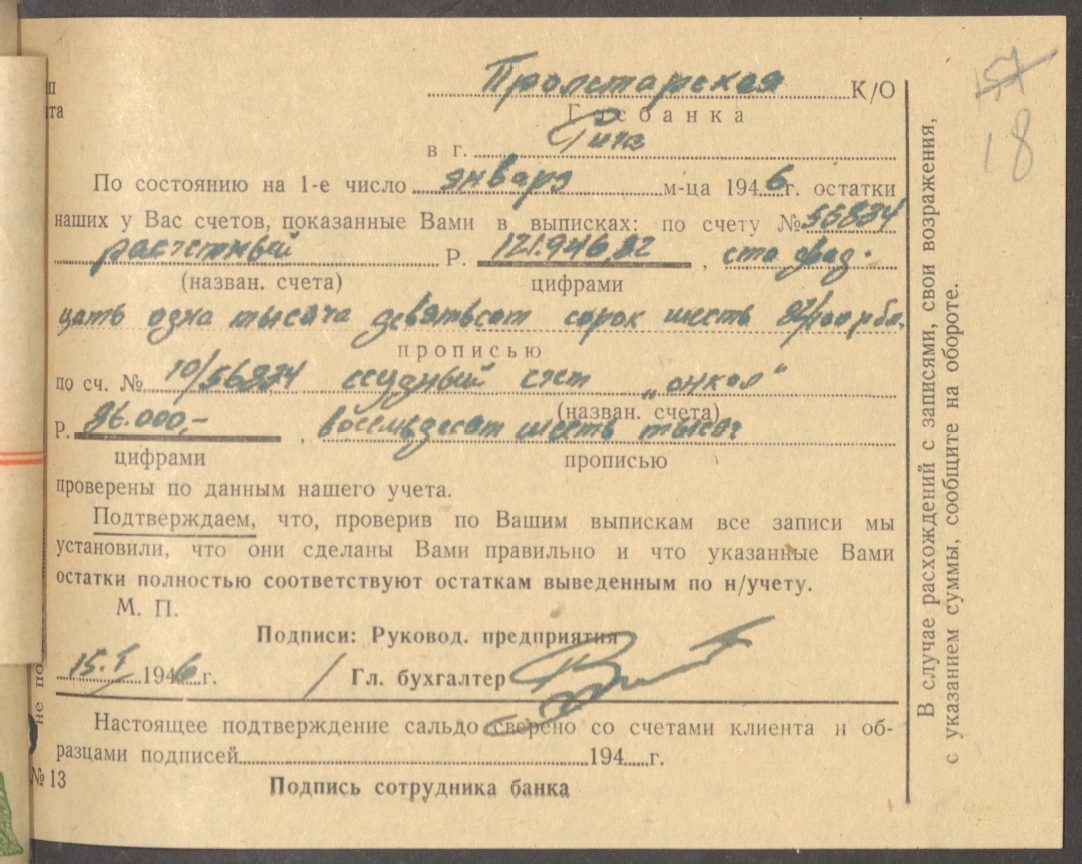 п
та
Пролетарская К/О
Госбанка
в г. Рига
По состоянию на 1-е число января м-ца 1946 г. остатки
наших у Вас счетов, показанные Вами в выписках: по счету № 55834
расчетный Р. 121.946,82 , сто двад-
(назван. счета) цифрами
цать одна тысяча девятьсот сорок шесть 82/100 рбл.
прописью
по сч. № 10/56834 ссудный счет „онкол"
(назван. счета)
Р. 86.000,- , восемьдесят шесть тысяч
цифрами прописью
проверены по данным нашего учета.
Подтверждаем, что, проверив по Вашим выпискам все записи мы
установили, что они сделаны Вами правильно и что указанные Вами
остатки полностью соответствуют остаткам выведенным по н/учету.
М. П.
Подписи: Руковод. предприятия
15.I 1946 г. Гл. бухгалтер
Настоящее подтверждение сальдо сверено со счетами клиента и об-
разцами подписей 194 г.
№ 13
Подпись сотрудника банка
не по
В случае расхождений с записями, свои возражения,
с указанием суммы, сообщите на обороте.
157
18